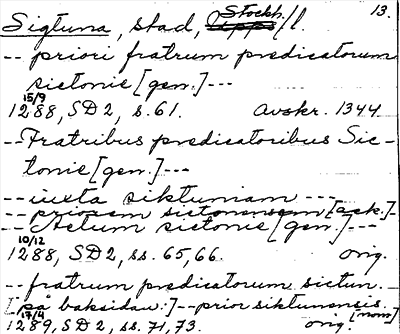 Sigtuna, stad, Stockh. ll. 13.
-- priori fratrum predicatorum
sictonie [gen.] ---
15/9
1288, SD 2, s. 61. Avskr. 1344.
-- Fratribus predicatoribus Sic-
tonie [gen.] ---
-- iuxta siktuniam ---
-- priorem sictonensem [ack.] -
-- Actum sictonie [gen.] ---
10/12
1288, SD 2, ss. 65, 66. orig.
-- fratrum predicatorum sictun.
[på baksidan:] -- prior siktunensis.
17/4 [nom.]
1289, SD 2, ss. 71, 73. orig.